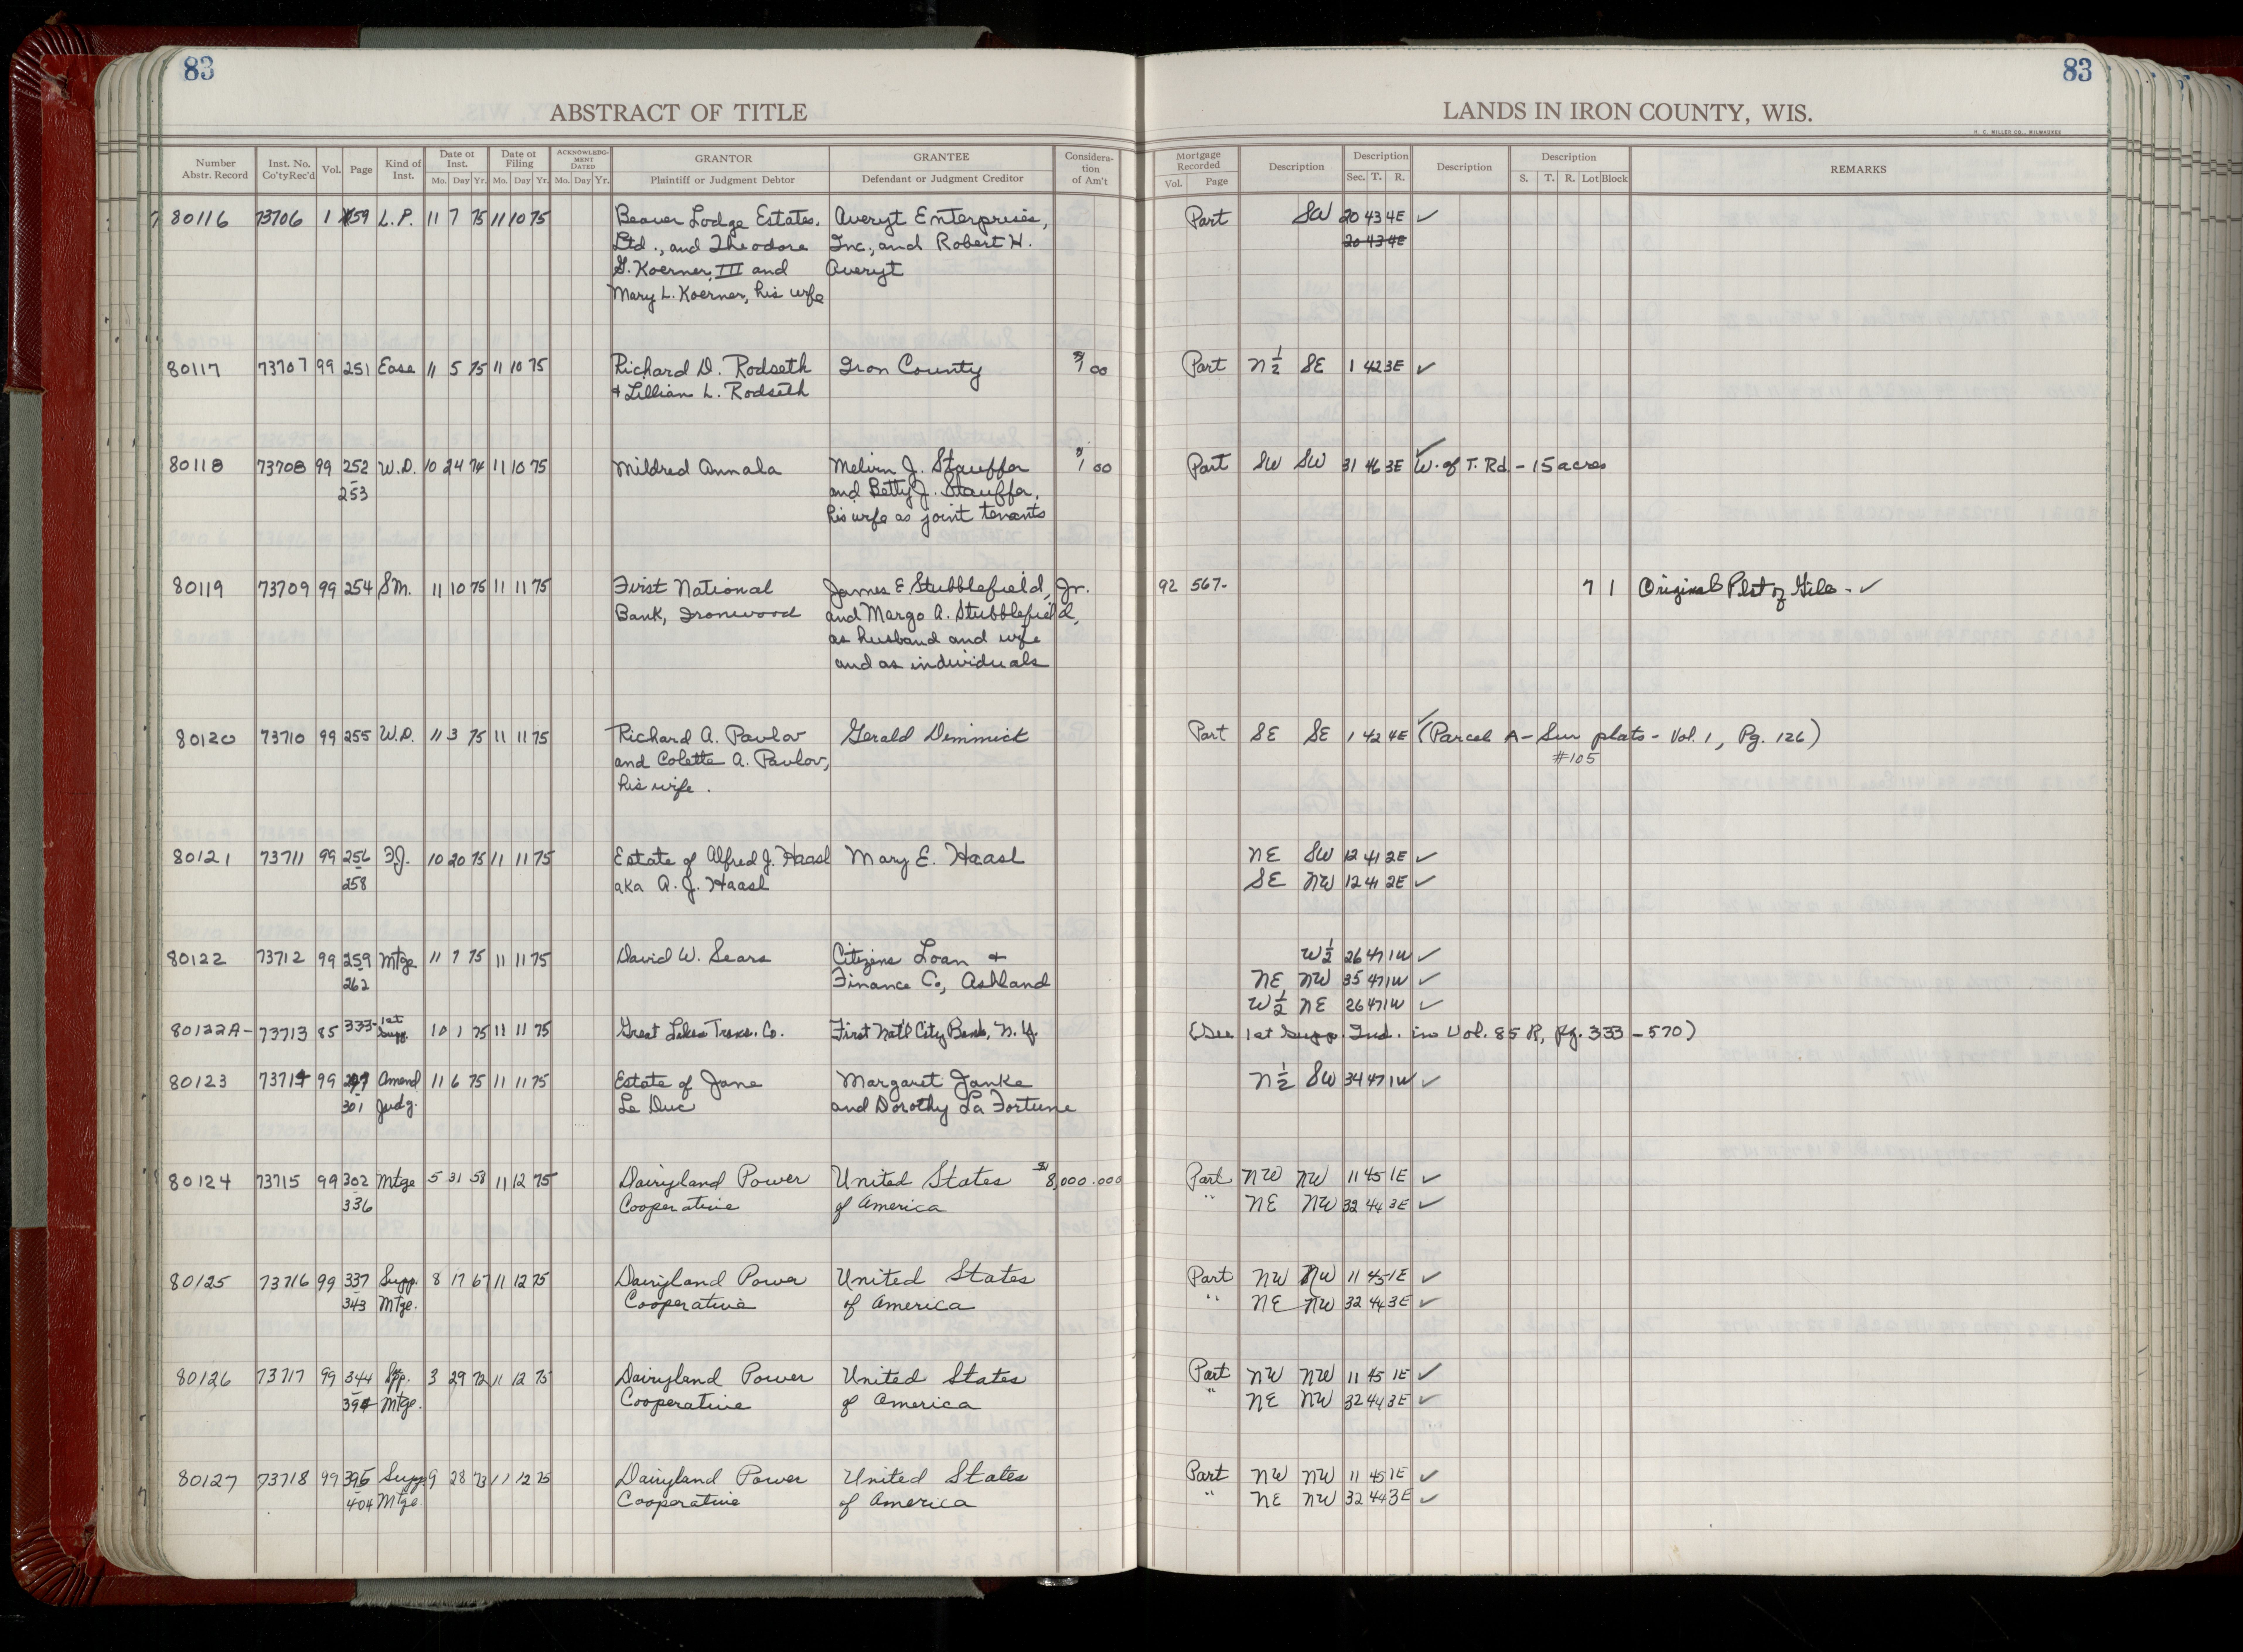 83
83
ABSTRACT OF TITLE
LANDS IN IRON COUNTY, WIS.
H. C. MILLER CO., MILWAUKEE
Number Abstr. Record Inst. No. Co'ty Rec'd Vol. Page Kind of Inst. Date of Inst. Mo. Day Yr. Date of Filing Mo. Day Yr. ACKNOWLEDG-MENT DATED Mo. Day Yr. GRANTOR Plaintiff or Judgment Debtor GRANTEE Defendant or Judgment Creditor Considera-tion of Am't Mortgage Recorded Vol. Page Description Description Sec. T. R. Description Description S. T. R. Lot Block REMARKS
80116 73706 1 159 L.P. 11 7 75 11 10 75 Beaver Lodge Estates, Averyt Enterprises, Part SW 20 43 4E ✓
Ltd., and Theodore Inc., and Robert H. 20 43 4E
G. Koerner, III and Averyt
Mary L. Koerner, his wife
80117 73707 99 251 Ease 11 5 75 11 10 75 Richard D. Rodseth Iron County $1 00 Part N½ SE 1 42 3E ✓
& Lillian L. Rodseth
80118 73708 99 252 W.D. 10 24 74 11 10 75 Mildred Annala Melvin J. Stauffer $1 00 Part SW SW 31 46 3E ✓ W. of T. Rd - 15 acres
253 and Betty J. Stauffer,
his wife as joint tenants
80119 73709 99 254 SM. 11 10 75 11 11 75 First National James E Stubblefield, Jr. 92 567- 7 1 Original Plat of Gile - ✓
Bank, Ironwood and Margo A. Stubblefield,
as husband and wife
and as individuals
80120 73710 99 255 W.D. 11 3 75 11 11 75 Richard A. Pavlov Gerald Dimmick Part SE SE 1 42 4E ✓ (Parcel A - Sur plats - Vol. 1, Pg. 126)
and Colette A. Pavlov, #105
his wife.
80121 73711 99 256 FJ. 10 20 75 11 11 75 Estate of Alfred J. Haasl Mary E. Haasl NE SW 12 41 2E ✓
258 aka A. J. Haasl SE NW 12 41 2E ✓
80122 73712 99 259 Mtge 11 7 75 11 11 75 David W. Sears Citizens Loan & W½ 26 47 1W ✓
262 Finance Co, Ashland NE NW 35 47 1W ✓
W½ NE 26 47 1W ✓
80122A- 73713 85 333- 1st Supp. 10 1 75 11 11 75 Great Lakes Trans. Co. First Nat'l City Bank, N.Y. (See 1st Supp. Ind. in Vol. 85 R, pg. 333 - 570)
80123 73714 99 299 Amend 11 6 75 11 11 75 Estate of Jane Margaret Janke N½ SW 34 47 1W ✓
301 Judg. Le Duc and Dorothy La Fortune
80124 73715 99 302 Mtge 5 31 58 11 12 75 Dairyland Power United States $8,000.000 Part NW NW 11 45 1E ✓
336 Cooperative of America " NE NW 32 44 3E ✓
80125 73716 99 337 Supp. 8 17 67 11 12 75 Dairyland Power United States Part NW NW 11 45 1E ✓
343 Mtge. Cooperative of America " NE NW 32 44 3E ✓
80126 73717 99 344 Spp. 3 29 72 11 12 75 Dairyland Power United States Part NW NW 11 45 1E ✓
394 Mtge. Cooperative of America " NE NW 32 44 3E ✓
80127 73718 99 395 Supp 9 28 73 11 12 75 Dairyland Power United States Part NW NW 11 45 1E ✓
404 Mtge. Cooperative of America " NE NW 32 44 3E ✓